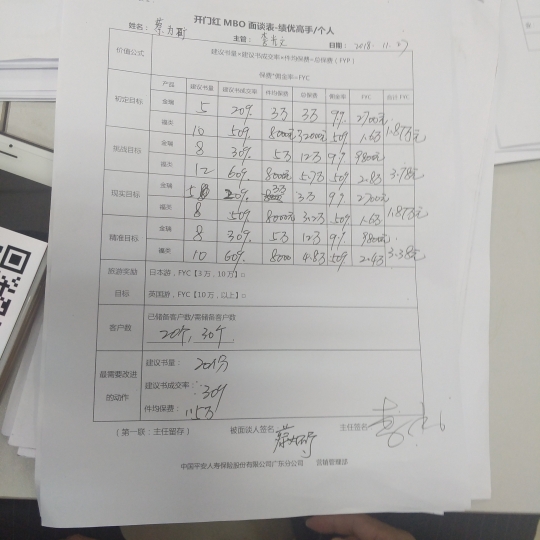 开门红 MBO 面谈表-绩优高手/个人
姓名: 主管: 日期: 2018.11.27
价值公式 建议书量×建议书成交率×件均保费=总保费(FYP)
保费*佣金率=FYC
产品 建议书量 建议书成交率 件均保费 总保费 佣金率 FYC 合计 FYC
初定目标 金瑞 5 20% 3万 3万 9% 2700元 1.87万元
福类 10 50% 8000元 50% 1.6万
挑战目标 金瑞 8 30% 5万 12万 9% 9800元 3.78元
福类 12 60% 8000元 5.7万 50% 2.8万
现实目标 金瑞 3万 3万 9% 2700元 1.87万元
福类 8 50% 8000元 3.2万 50% 1.6万
精准目标 金瑞 8 30% 5万 12万 9% 9800元 3.38元
福类 10 60% 8000 4.8万 50% 2.4万
旅游奖励 目标 日本游,FYC【3万,10万】□
英国游,FYC【10万,以上】□
客户数 已储备客户数/需储备客户数
20个, 30个
最需要改进的动作 建议书量: 20份
建议书成交率: 30%
件均保费: 1.5万
(第一联:主任留存) 被面谈人签名: 主任签名:
中国平安人寿保险股份有限公司广东分公司 营销管理部